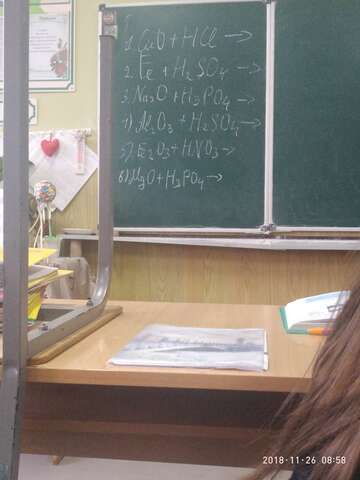 1. CuO + HCl →
2. Fe + H2SO4 →
3. Na2O + H3PO4 →
4) Al2O3 + H2SO4 →
5) Fe2O3 + HNO3 →
6) + H3PO4 →
2018-11-26 08:58